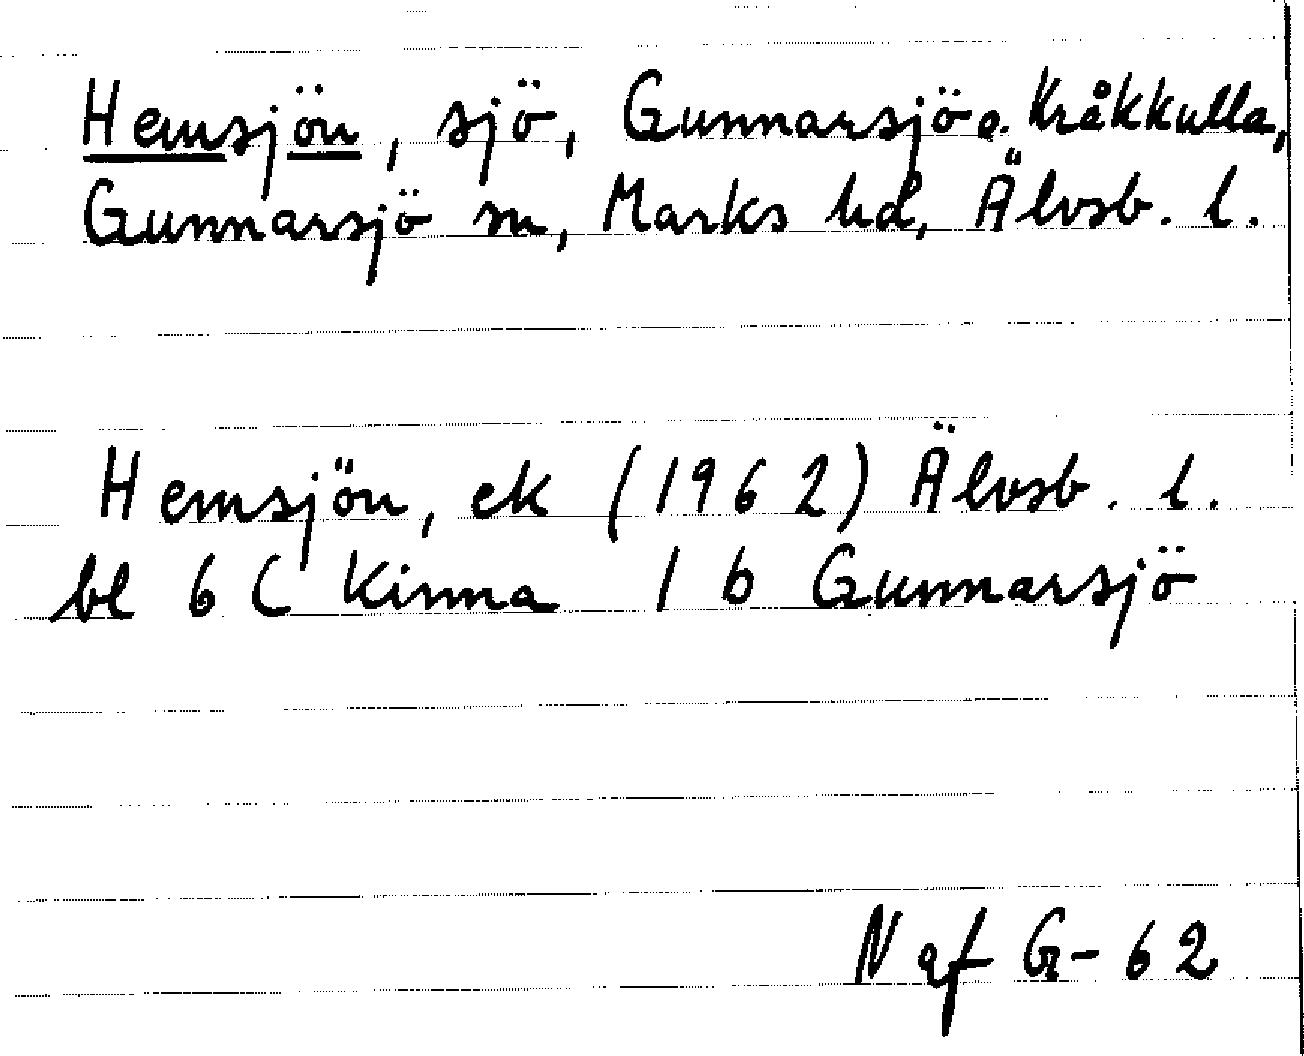 Hemsjön, sjö, Gunnarsjö o. Kråkkulla,
Gunnarsjö sn, Marks hd, Älvsb. l.
Hemsjön, ek (1962) Älvsb. l.
bl 6 C Kinna 1 b Gunnarsjö
N af G-62